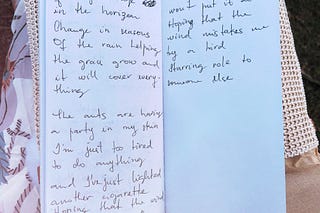 in the horizon
Change in seasons
Of the rain helping
the grass grow and
it will cover every-
thing
The ants are having
a party in my skin
I'm just too tired
to do anything
and I've just lighted
another cigarette
Hoping that the wind
won't put it
Hoping that the
wind mistakes me
by a bird
Starring role to
someone else